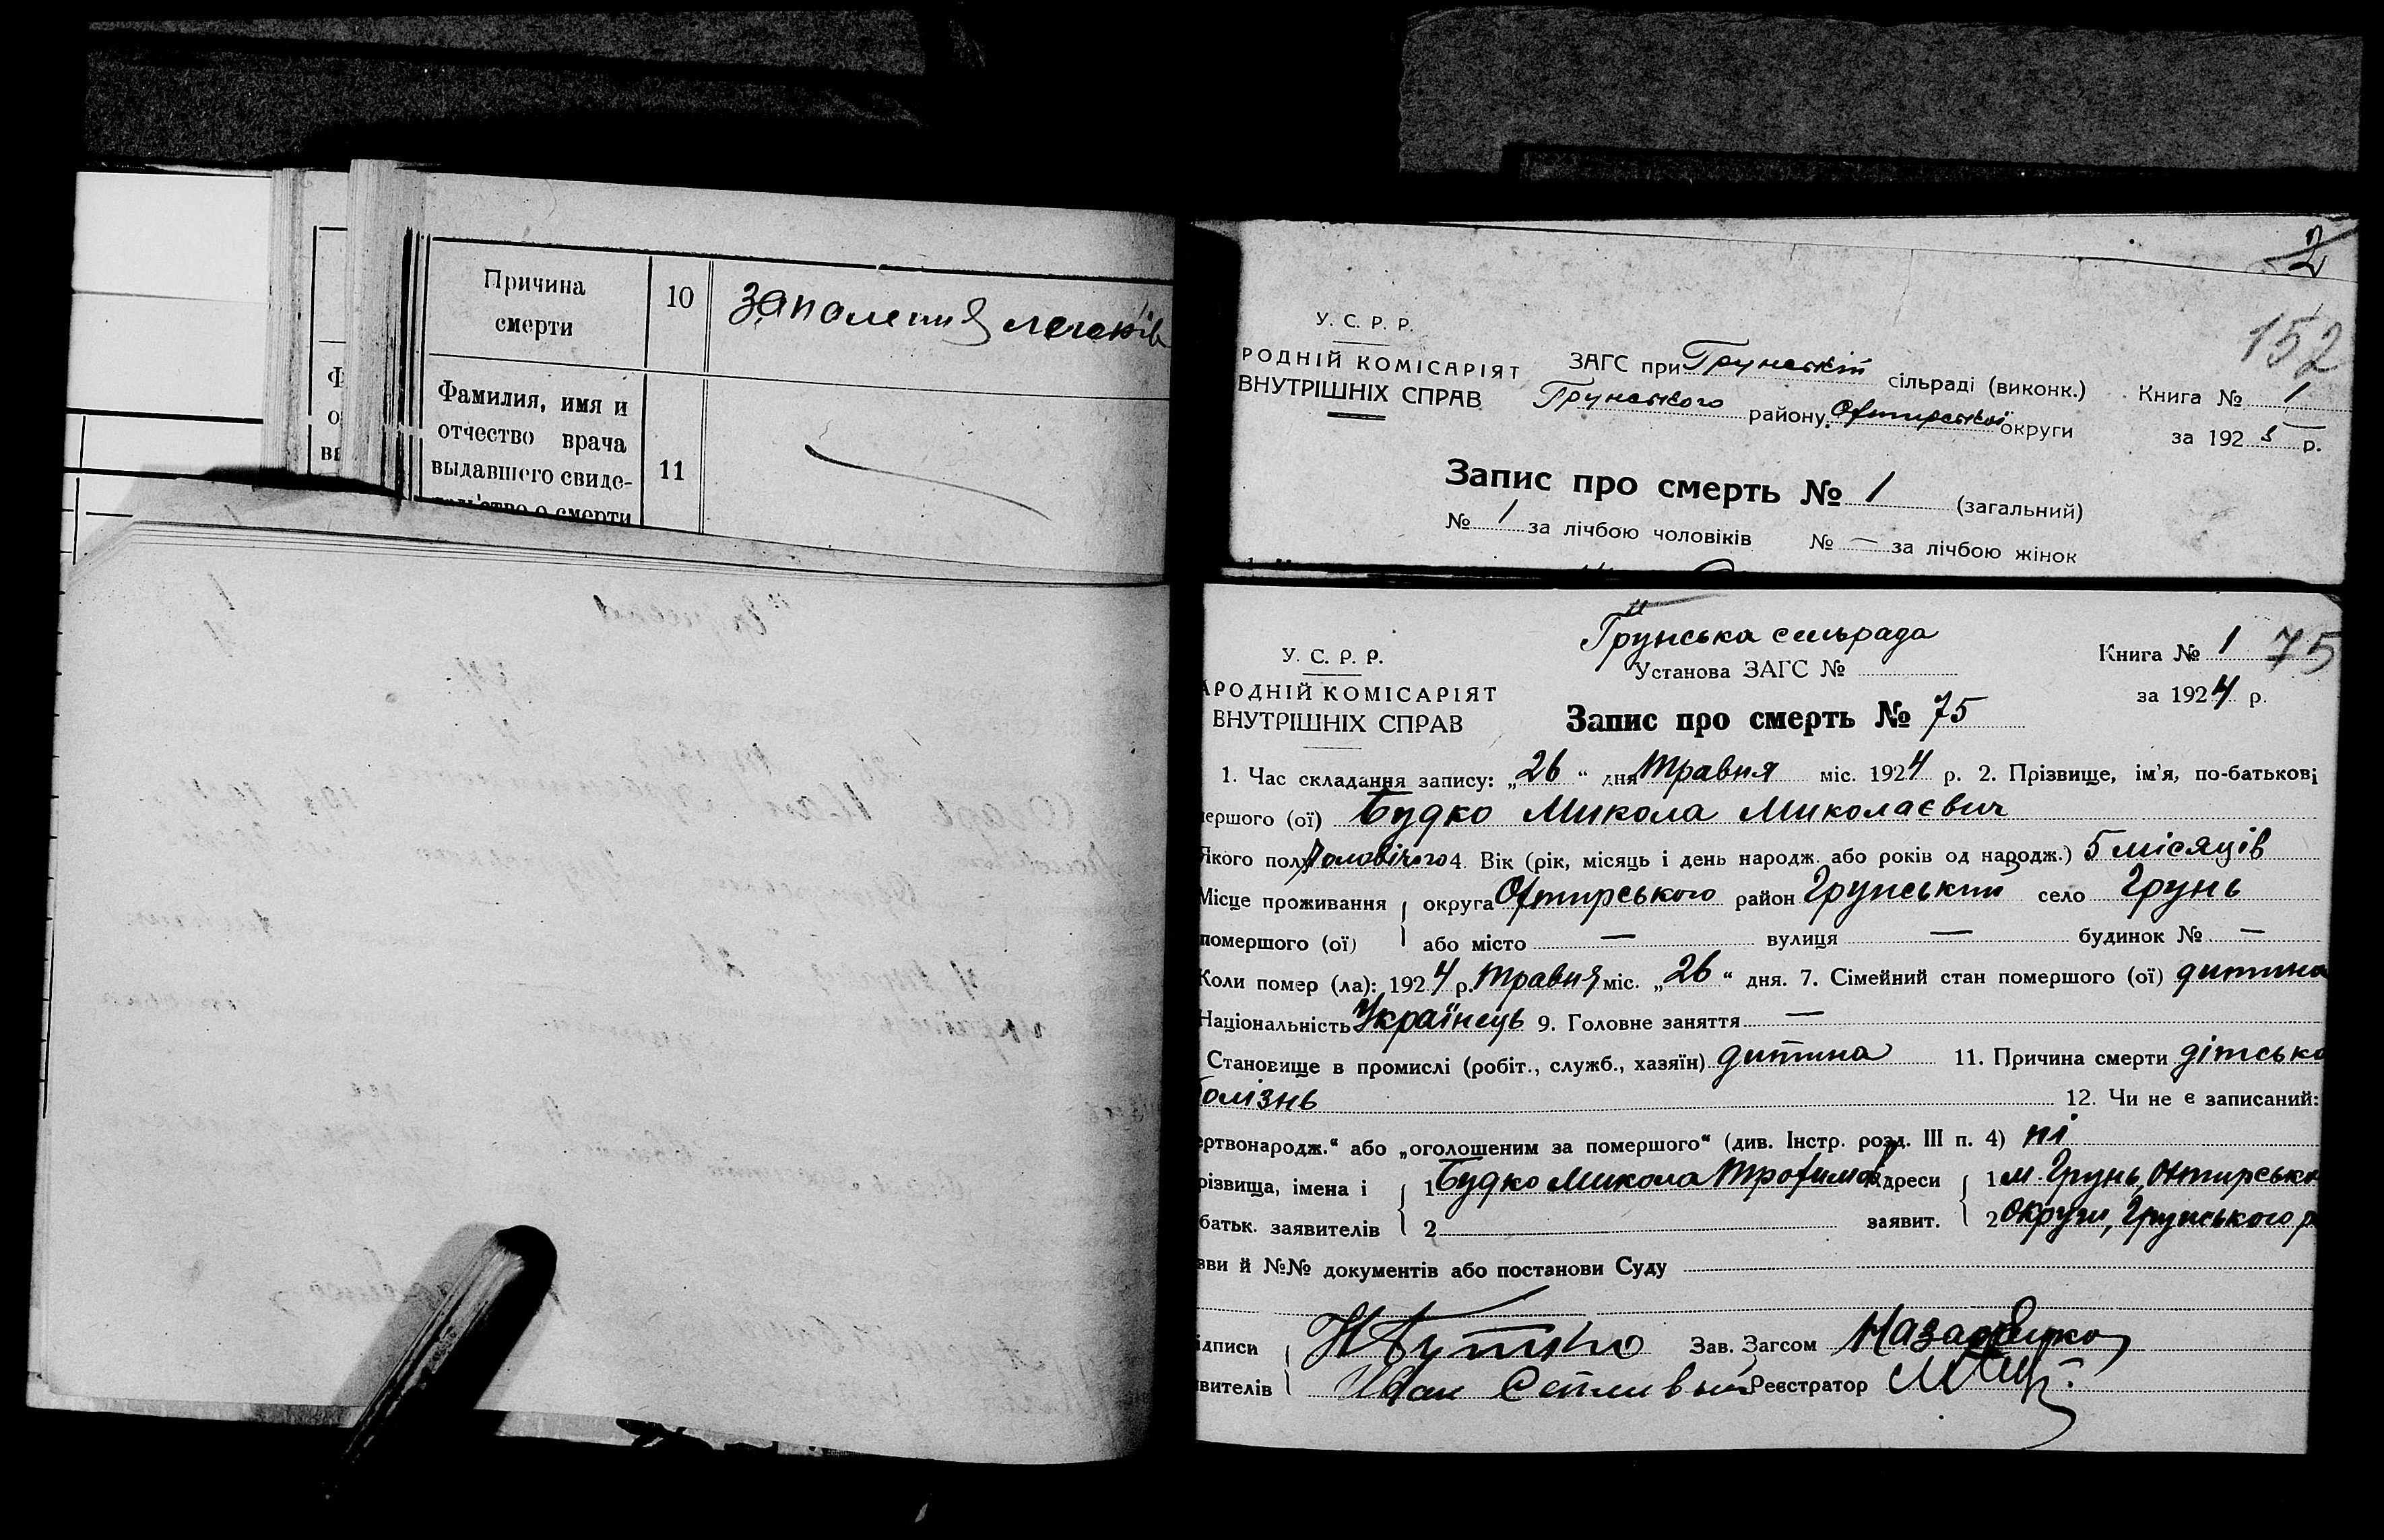 Причина
смерти
10
запаления легенів
Фамилия, имя и
отчество врача
выдавшего свиде-
11
2
152
У. С. Р. Р.
РОДНІЙ КОМІСАРІЯТ
ВНУТРІШНІХ СПРАВ
ЗАГС при Грунській сільраді (виконк.)
Грунського району Охтирської округи
Книга № 1
за 1925 р.
Запис про смерть № 1 (загальний)
№ 1 за лічбою чоловіків № — за лічбою жінок
Грунська сельрада
У. С. Р. Р.
Установа ЗАГС №
Книга № 1 75
АРОДНІЙ КОМІСАРІЯТ
ВНУТРІШНІХ СПРАВ
за 1924 р.
Запис про смерть № 75
1. Час складання запису: „26“ дня Травня міс. 1924 р. 2. Прізвище, ім'я, по-батькові
мершого (ої) Будко Микола Миколаєвич
Якого полу Чоловічого 4. Вік (рік, місяць і день народж. або років од народж.) 5 місяців
Місце проживання округа Охтирського район Грунський село Грунь
помершого (ої) або місто — вулиця — будинок № —
Коли помер (ла): 1924 р. Травня міс. „26“ дня. 7. Сімейний стан помершого (ої) дитина
Національність Українець 9. Головне заняття —
Становище в промислі (робіт., служб., хазяїн) дитина 11. Причина смерти дітська
болізнь 12. Чи не є записаний:
ертвонародж.“ або „оголошеним за помершого“ (див. Інстр. розд. III п. 4) ні
різвища, імена і 1 Будко Микола Трофимов Адреси 1 м. Грунь, Охтирсько
батьк. заявителів 2 заявит. 2 округи, Грунського р
зви й №№ документів або постанови Суду
ідписи Зав. Загсом
явителів Иван Реєстратор